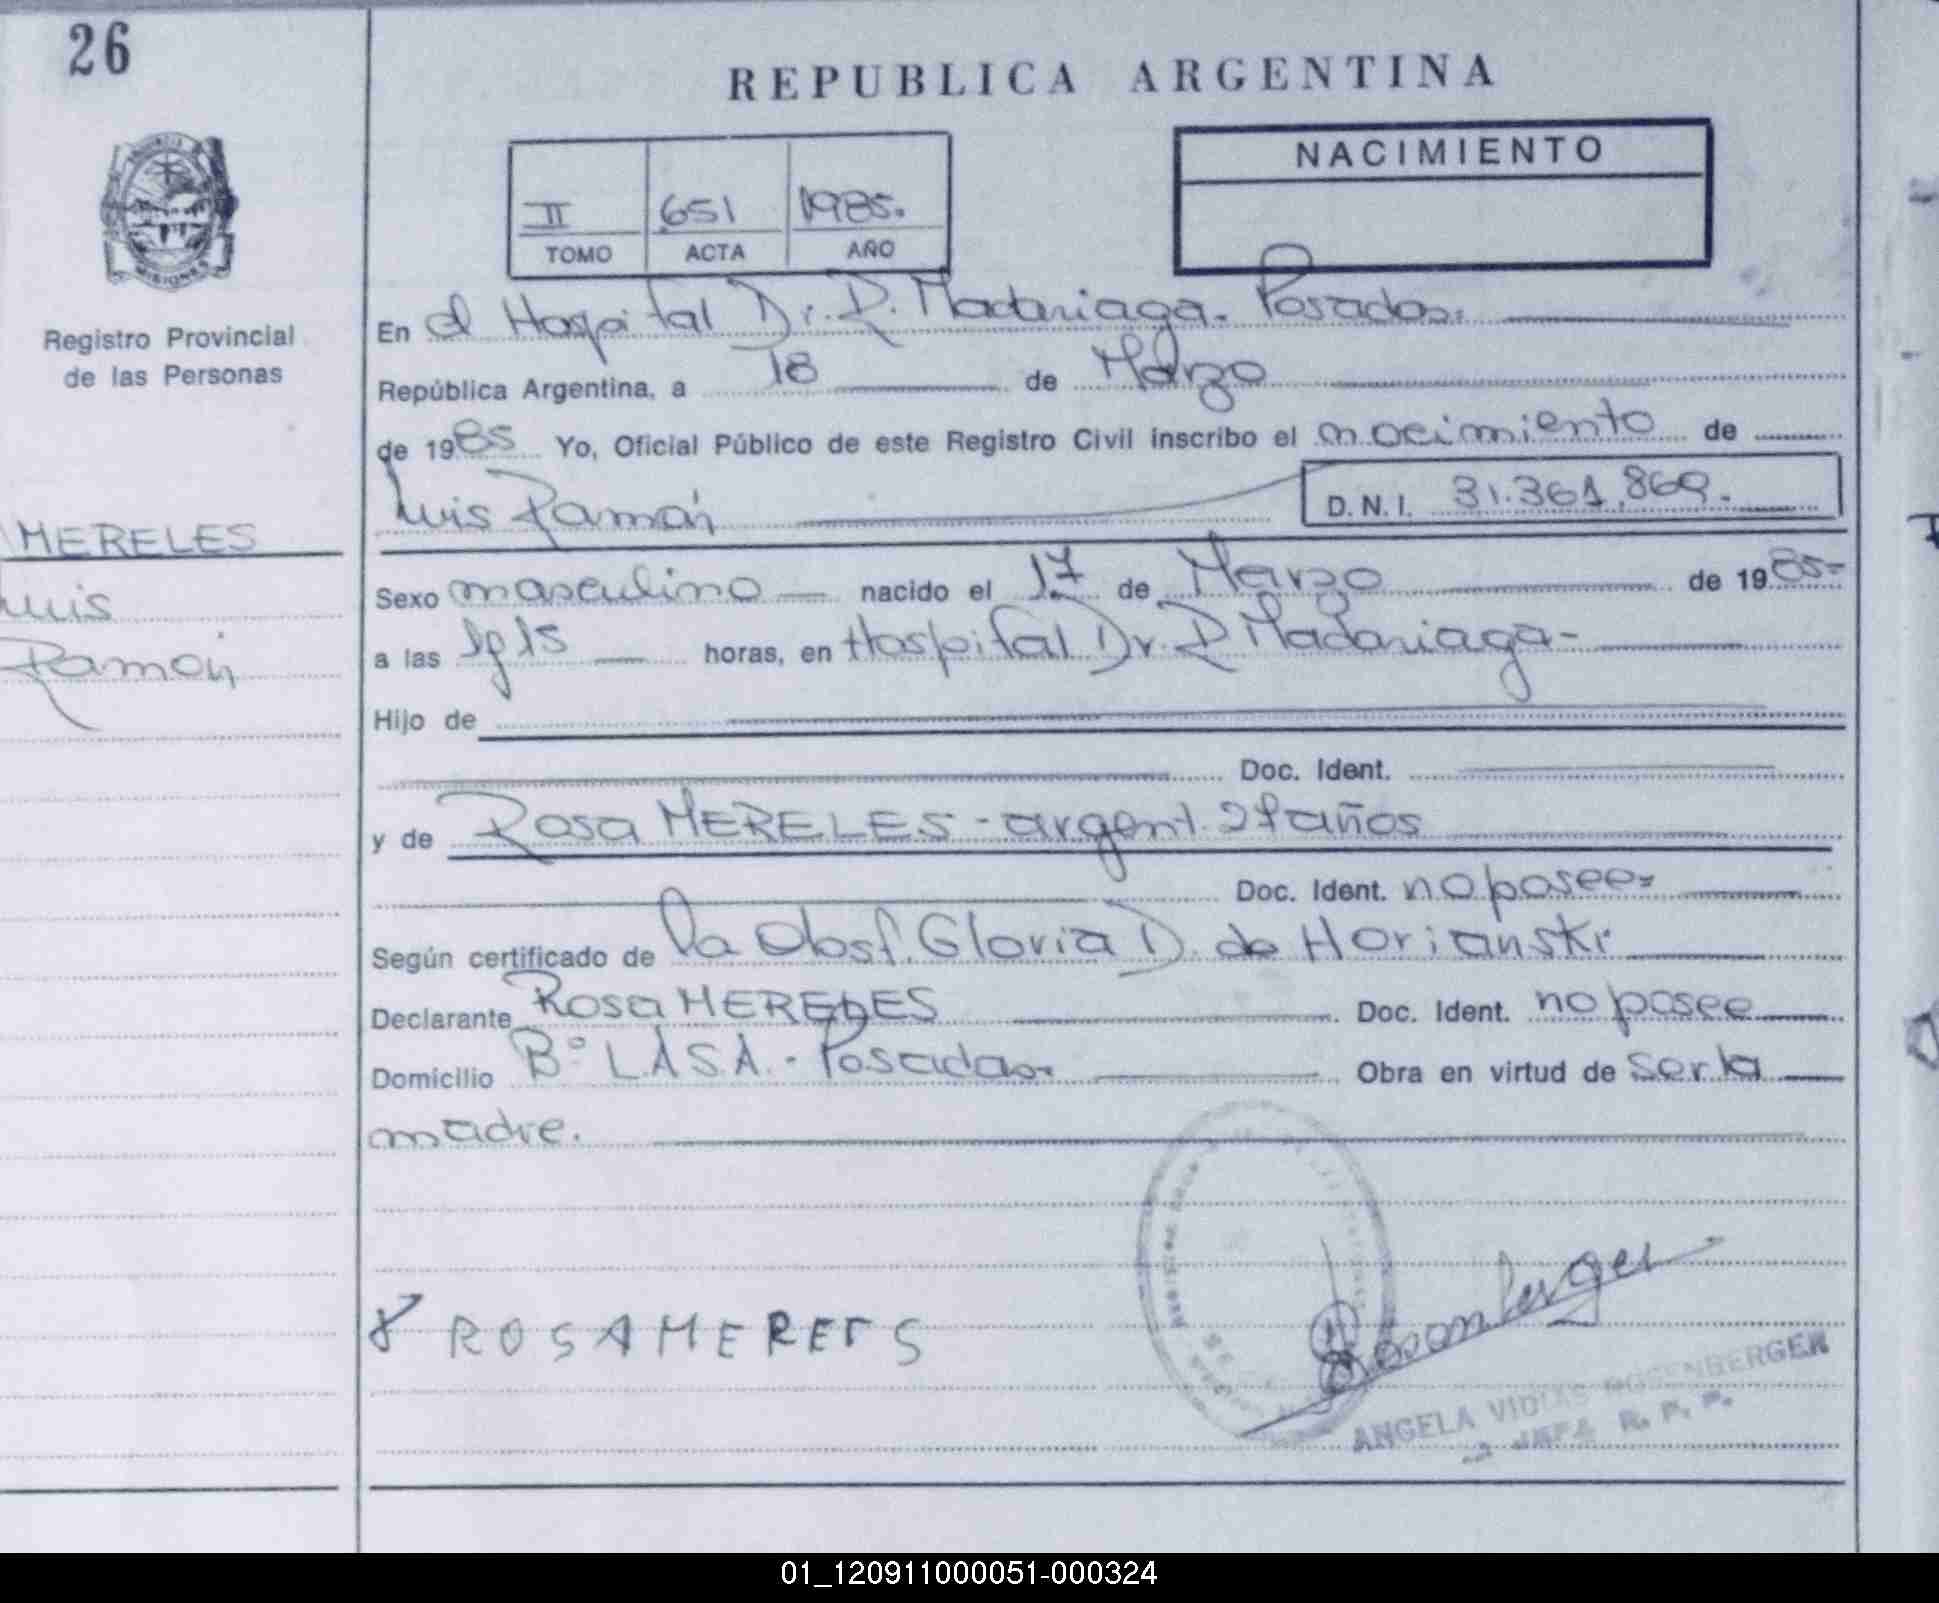 26
REPUBLICA ARGENTINA
NACIMIENTO
II 651 1985.
TOMO ACTA AÑO
MISIONES
Registro Provincial
de las Personas
En el Hospital Dr. R. Madariaga. Posadas.
República Argentina, a 18 de Marzo
de 1985 Yo, Oficial Público de este Registro Civil inscribo el nacimiento de
Luis Ramón D.N.I. 31.361.869.
MERELES
Luis
Ramón
Sexo masculino nacido el 17 de Marzo de 1985-
a las horas, en Hospital Dr. R Madariaga-
Hijo de
Doc. Ident.
y de Rosa MERELES - argent. años
Doc. Ident. no posee-
Según certificado de la Obst. Gloria D. de Horianski
Declarante Rosa MERELES Doc. Ident. no posee
Domicilio Bº L.A.S.A. - Posadas. Obra en virtud de ser la
madre.
ROSA MERELS
Rosemberger
ANGELA ROSENBERGER
JEFA R. P. P.
01_120911000051-000324